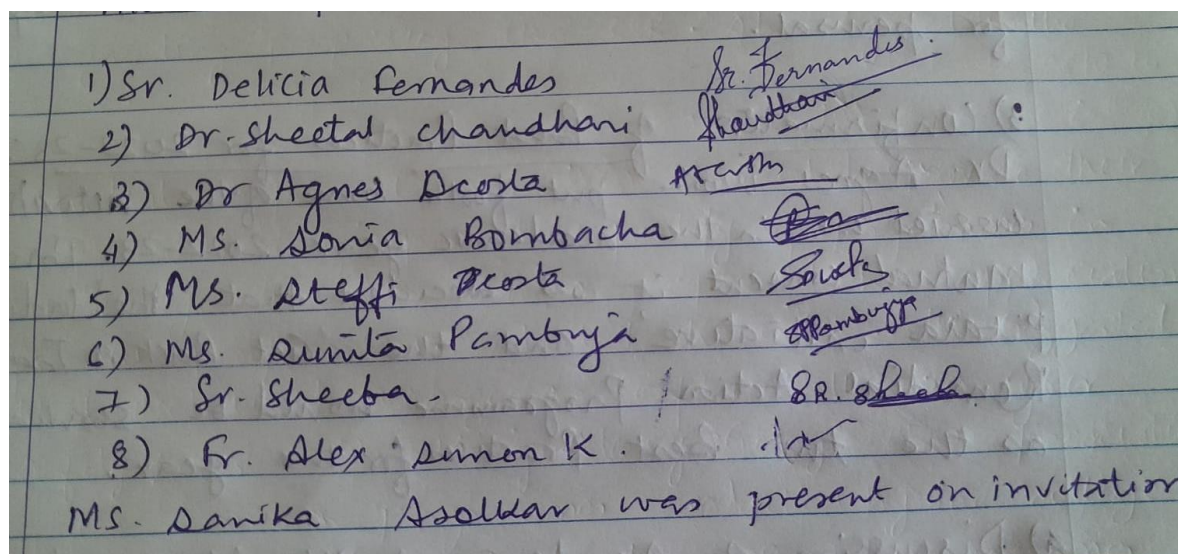 1) Sr. Delicia Fernandes Sr. Fernandes.
2) Dr. Sheetal Chaudhari
3) Dr Agnes Dcosta
4) Ms. Sonia Bombacha
5) Ms. Steffi Dcosta
6) Ms. Sunita Pambuja SPPambujja
7) Sr. Sheeba. SR. Sheeb
8) Fr. Alex Simon K.
Ms. Sanika Asolkar was present on invitation